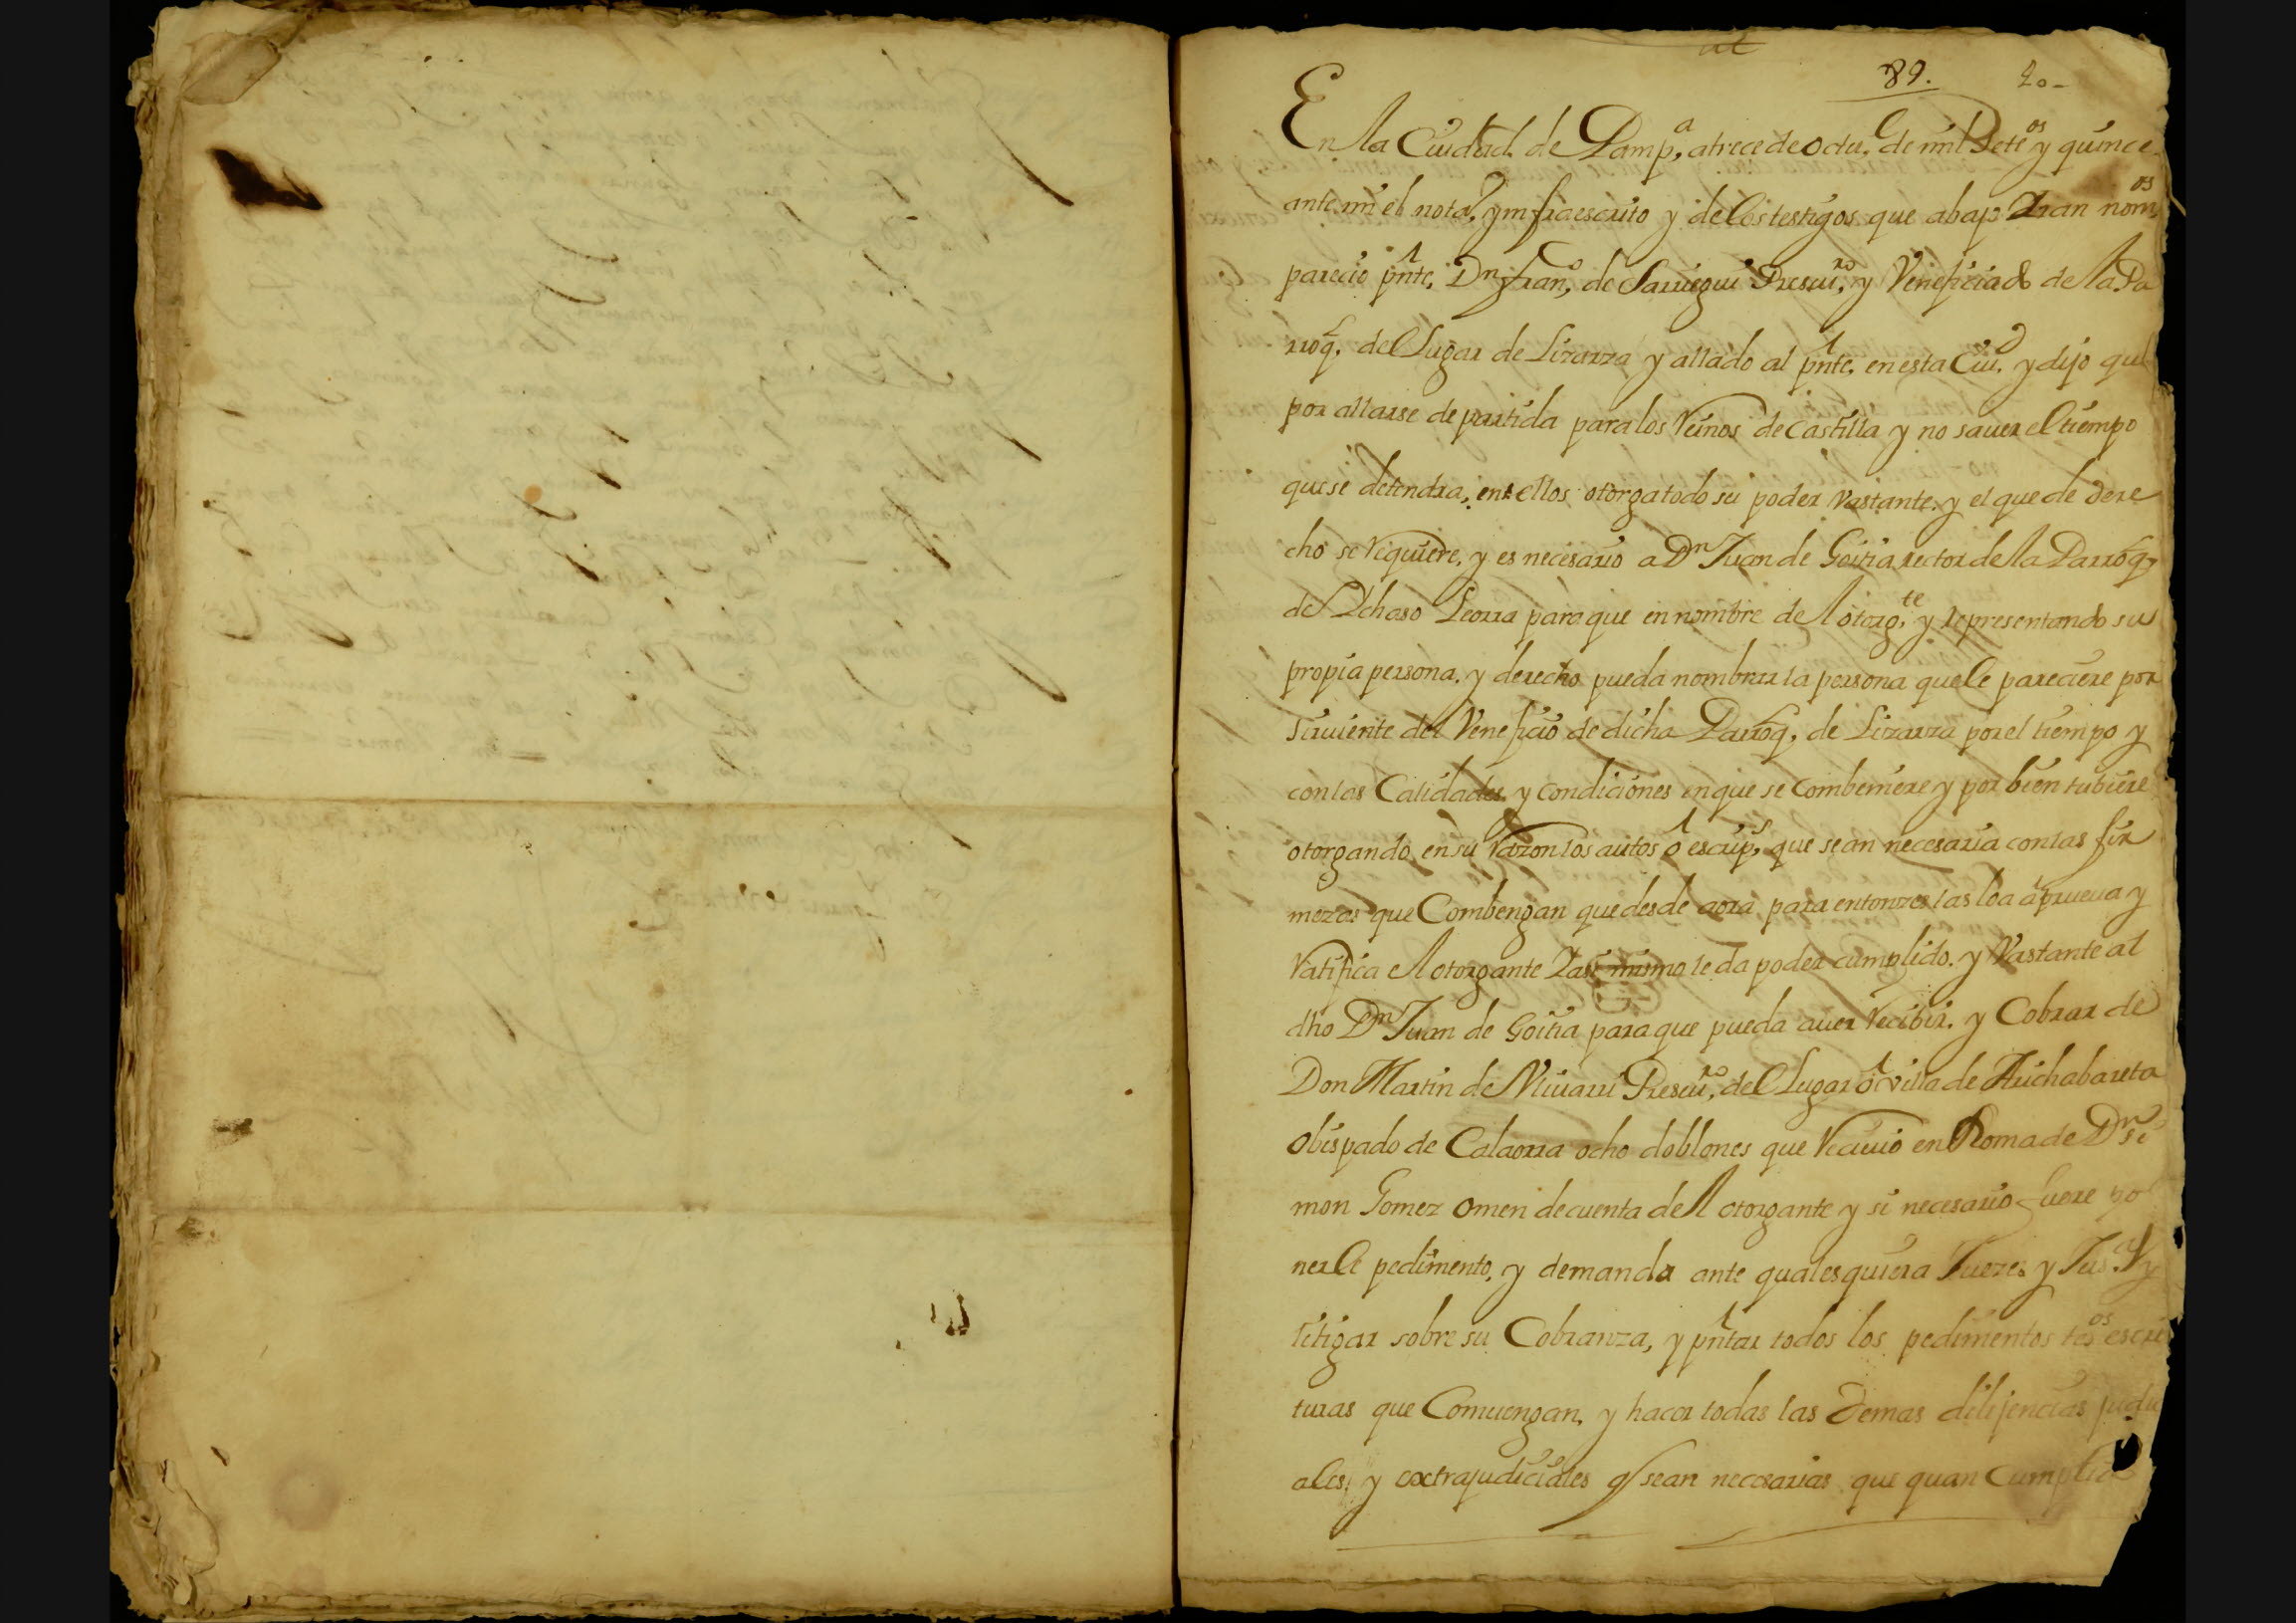 89. 20-
En la Ciudad de Pamp.a a trece de octu.e de mil Sete.os y quince
ante mi el nota.o ynfraescrito y de los testigos que abajo Yran nom.os
parecio pnte. Dn fran.co de Sarriegui Presui.ro y Veneficiado de la Pa
rroq. del Lugar de Lizarza y allado al pnte. en esta Ciu.d y dijo que
por allarse de partida para los Reinos de Castilla y no sauer el tiempo
que se detendra, en ellos otorga todo su poder vastante. y el que de dere
cho se requiere, y es necesario a Dn Juan de Goitia rector de la Parroq.
de Ychaso Leorra para que en nombre del otorg.te y representando su
propia persona. y derecho pueda nombrar la persona que le pareciere por
siruiente del Veneficio de dicha Parroq. de Lizarza por el tiempo y
con las Calidades y condiciones en que se combeniere y por bien tubiere
otorgando en su razon los autos o escrip.s que sean necesaria con las fir
mezas que Combengan que desde aora para entonzes las loa aprueua y
ratifica el otorgante Yasi mismo le da poder cumplido. y Vastante al
dho Dn Juan de Goitia para que pueda auer recibir. y Cobrar de
Don Martin de Presui.ro del Lugar o villa de Arichabareta
obispado de Calaorra ocho doblones que reciuio en Roma de Dn Si
mon Gomez Omen de cuenta del otorgante y si necesario fuere po
nerle pedimento, y demanda ante qualesquiera Juezes y Jus.as y
litigar sobre su Cobranza, y pntar todos los pedimentos tes.os escri
turas que Comuengan, y hacer todas las demas dilijencias judici
ales, y extrajudiciales q sean necesarias que quan cumplido